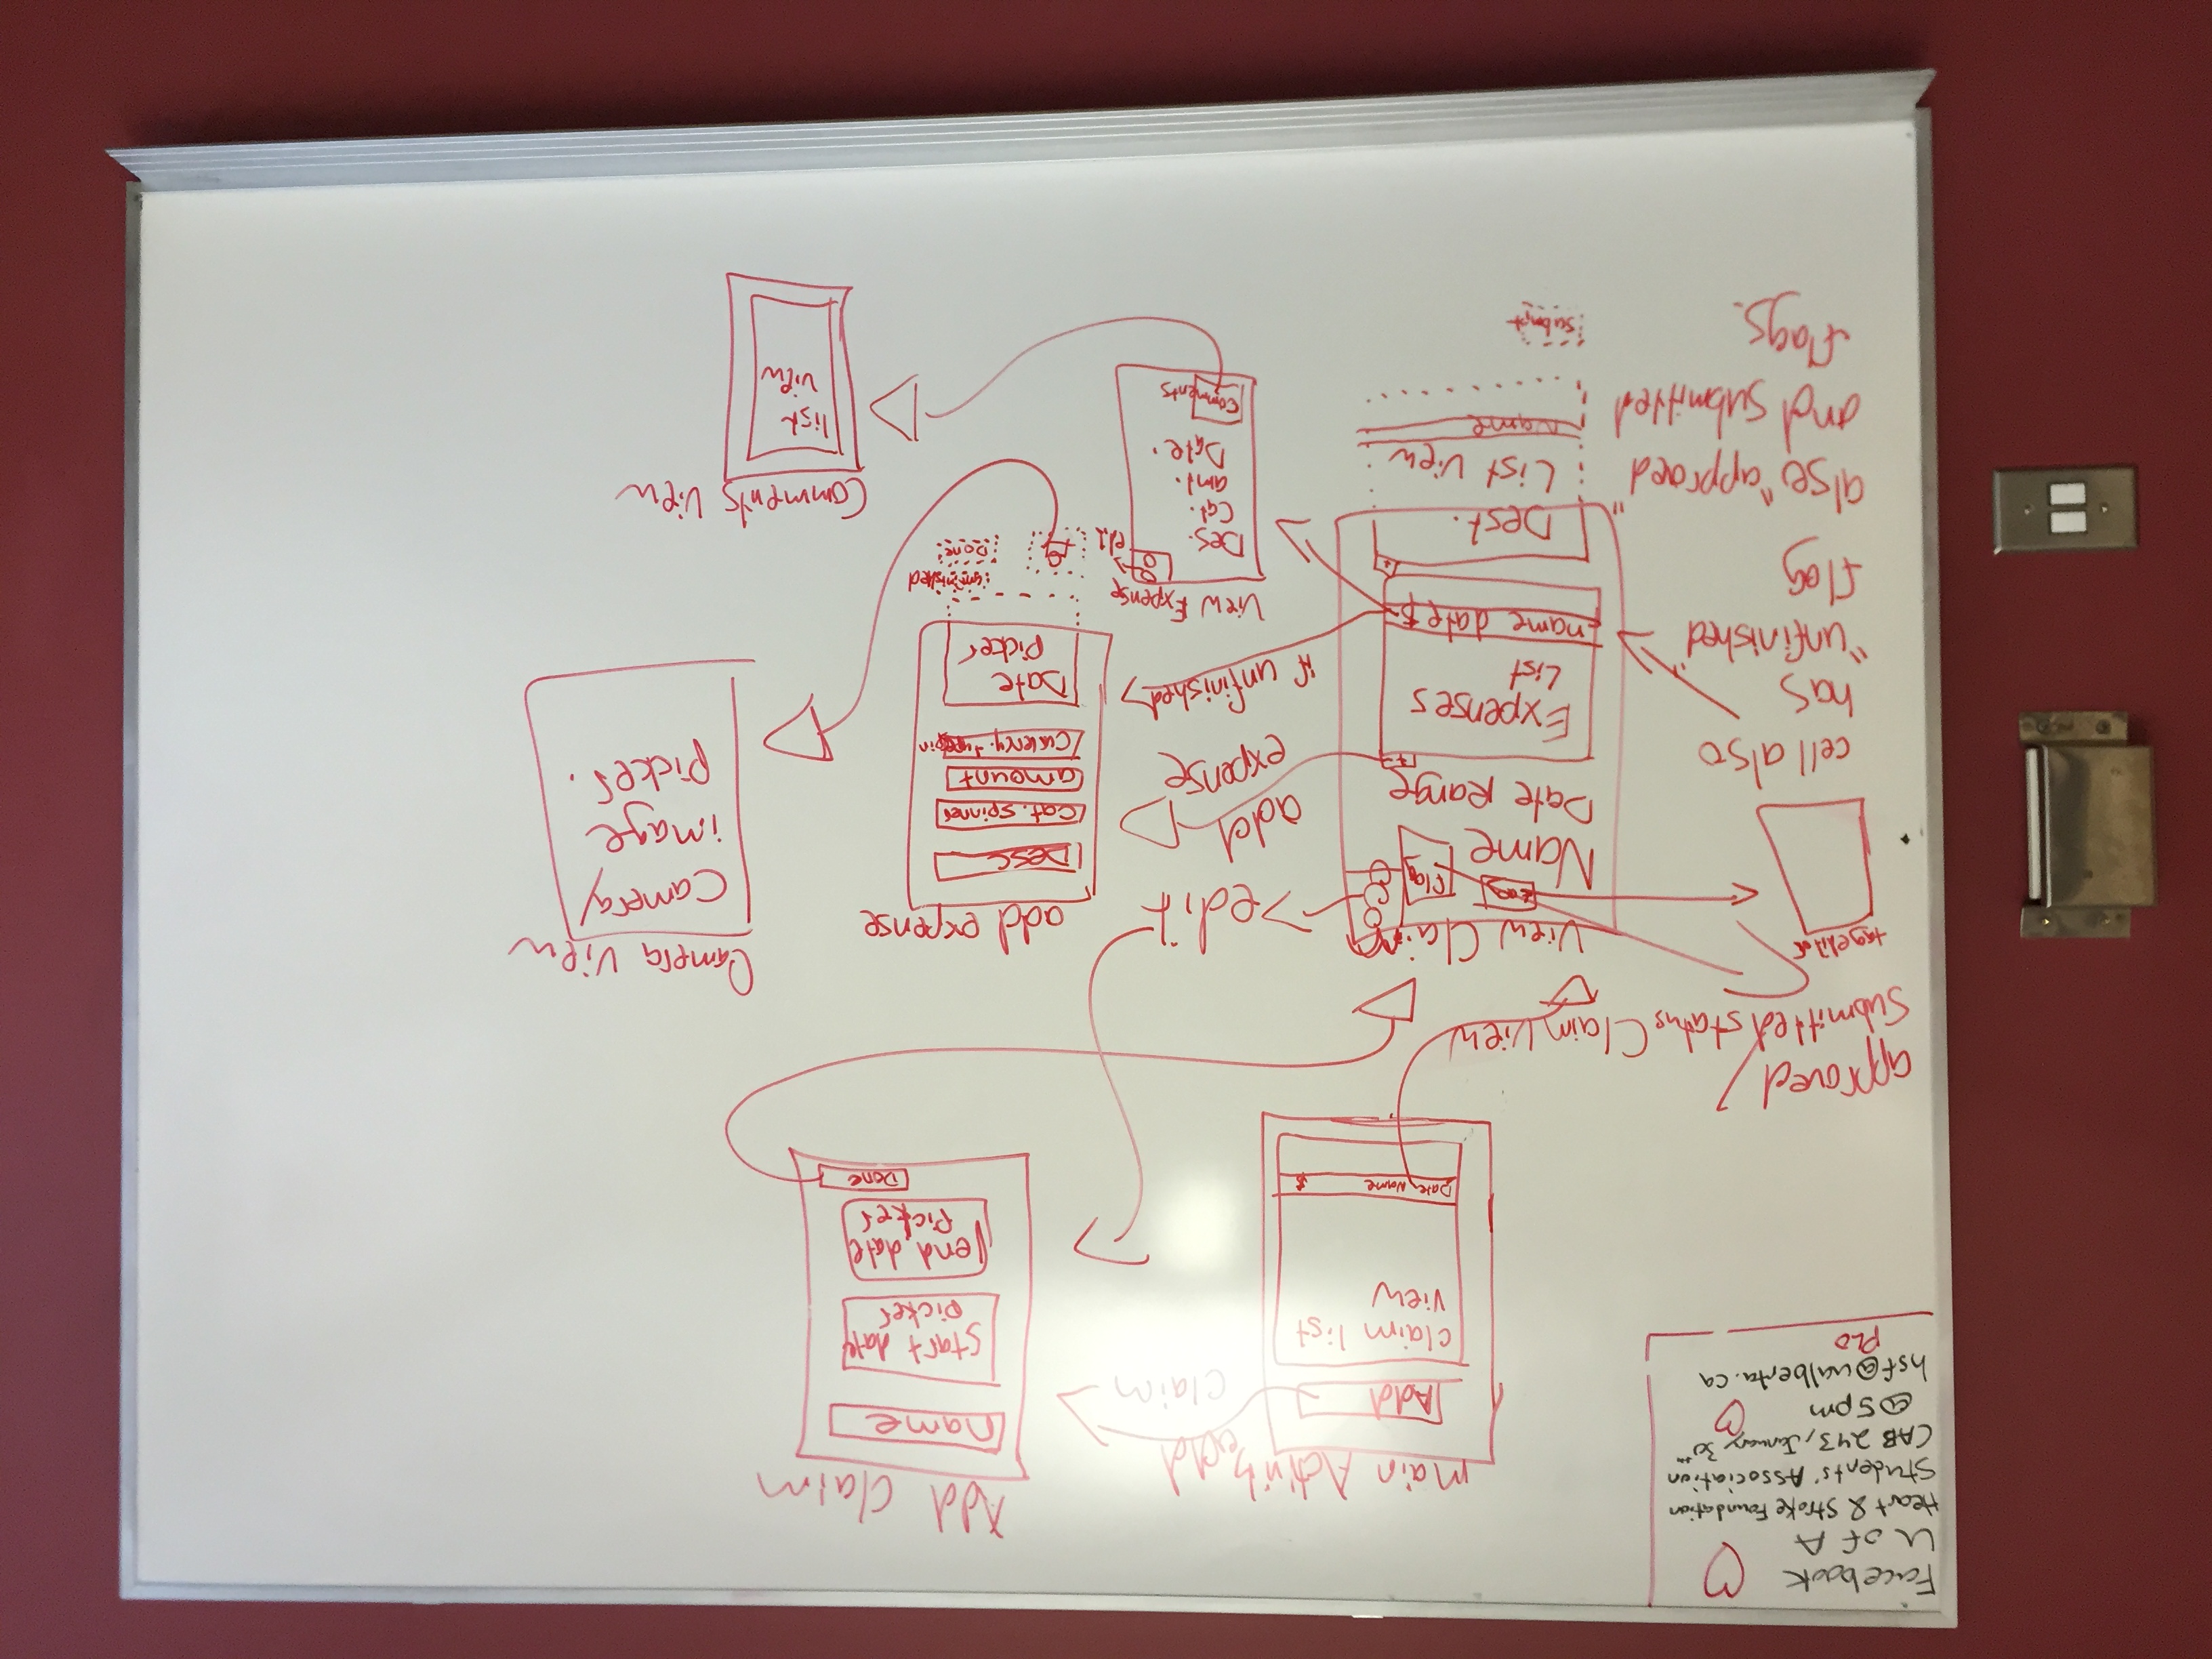 Facebook
U of A
Heart & Stroke Foundation
Students' Association
CAB 243, January 30th
@5pm
hsf@ualberta.ca
PLO
Main Activity
Add
claim list
view
Date Name $
add
claim
Add Claim
name
start date
picker
end date
picker
Done
approved/
submitted status
Claim View
tag editor
View Claim
tag
flag
Name
Date Range
+
Expenses
List
name date $
+
Dest.
List view
Name
submit
edit
add
expense
if unfinished
cell also
has
"unfinished"
flag
also "approed"
and submitted
flags.
add expense
Desc
Cat. spinner
amount
Currency. type spin
Date
Picker
unfinished
Done
View Expense
edit
Des.
Cat.
amt.
Date.
Comments
Camera View
Camera/
image
picker.
Comments View
list
view